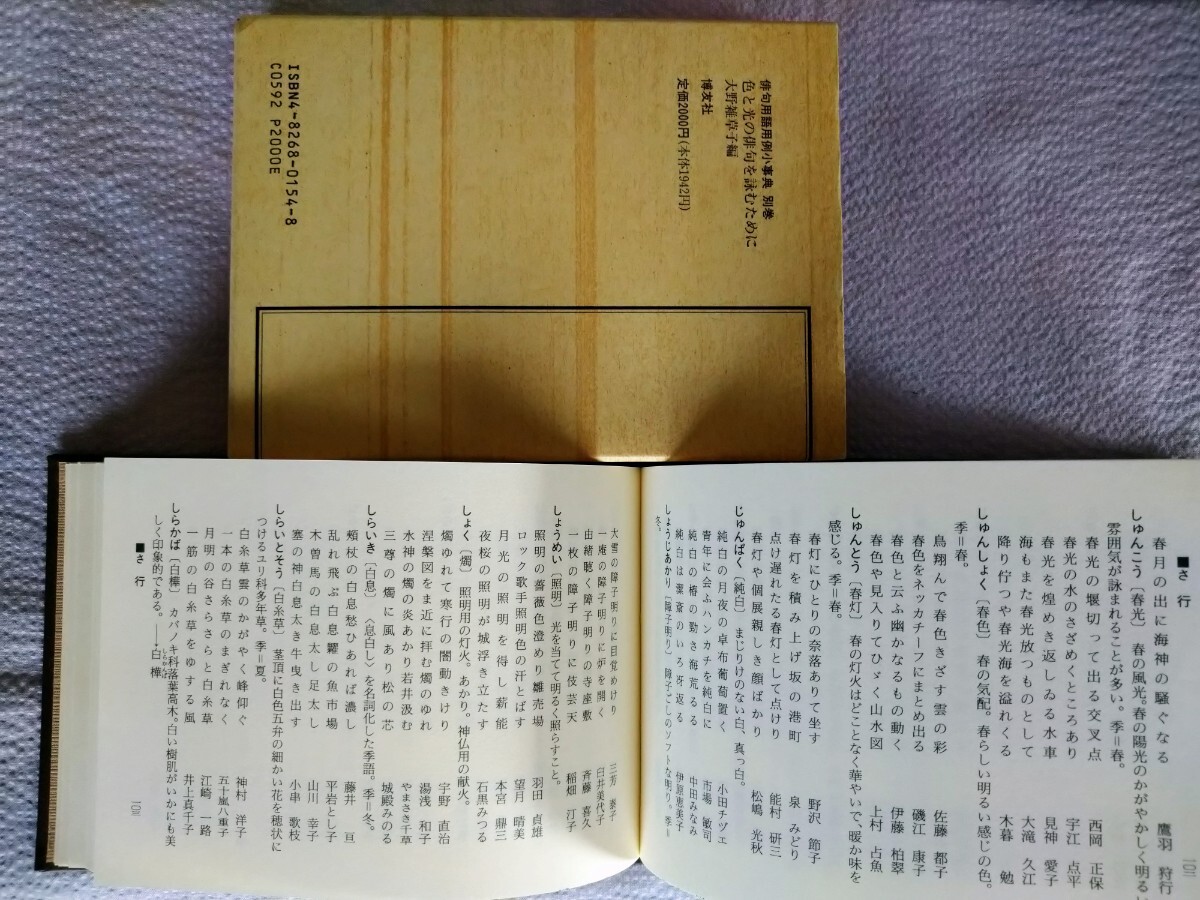 俳句用語用例小事典 別巻
色と光の俳句を詠むために
大野雑草子編
博友社
定価2000円(本体1942円)
ISBN4-8268-0154-8
C0592 P2000E
■さ 行
春月の出に海神の騒ぐなる 鷹羽 狩行
しゅんこう〔春光〕 春の風光。春の陽光のかがやかしく明るい
雰囲気が詠まれることが多い。季=春。
春光の堰切って出る交叉点 西岡 正保
春光の水のさざめくところあり 宇江 点平
春光を煌めき返しゐる水車 見神 愛子
海もまた春光放つものとして 大滝 久江
降り佇つや春光海を溢れくる 木暮 勉
しゅんしょく〔春色〕 春の気配。春らしい明るい感じの色。
季=春。
鳥翔んで春色きざす雲の彩 佐藤 都子
春色をネッカチーフにまとめ出る 磯江 康子
春色と云ふ幽かなるもの動く 伊藤 柏翠
春色や見入りてひゞく山水図 上村 占魚
しゅんとう〔春灯〕 春の灯火はどことなく華やいで、暖か味を
感じる。季=春。
春灯にひとりの奈落ありて坐す 野沢 節子
春灯を積み上げ坂の港町 泉 みどり
点け遅れたる春灯として点けり 能村 研三
春灯や個展親しき顔ばかり 松嶋 光秋
じゅんぱく〔純白〕 まじりけのない白、真っ白。
純白の月夜の卓布葡萄置く 小田チヅエ
青年に会ふハンカチを純白に 市場 敏司
純白の椿の勁さ海荒るる 中田みなみ
純白は葉斎のいろ冴返る 伊原恵美子
しょうじあかり〔障子明り〕 障子ごしのソフトな明り。季=
冬。
大雪の障子明りに目覚めけり
一庵の障子明りに炉を開く 臼井美代子
由緒聴く障子明りの寺座敷 斉藤 喜久
一枚の障子明りに伎芸天 稲畑 汀子
しょうめい〔照明〕 光を当てて明るく照らすこと。
照明の薔薇色澄めり雛売場 羽田 貞雄
ロック歌手照明色の汗とばす 望月 晴美
月光の照明を得し薪能 本宮 鼎三
夜桜の照明が城浮き立たす 石黒みつる
しょく〔燭〕 照明用の灯火。あかり。神仏用の献火。
燭ゆれて寒行の闇動きけり 宇野 直治
涅槃図をま近に拝む燭のゆれ 湯浅 和子
水神の燭の炎あかり若井汲む やまさき千草
三尊の燭に風あり松の芯 城殿みのる
しらいき〔白息〕 〈息白し〉を名詞化した季語。季=冬。
頬杖の白息愁ひあれば濃し 藤井 亘
乱れ飛ぶ白息糶の魚市場 平岩とし子
木曽馬の白息太し足太し 山川 幸子
塞の神白息太き牛曳き出す 小串 歌枝
しらいとそう〔白糸草〕 茎頂に白色五弁の細かい花を穂状に
つけるユリ科多年草。季=夏。
白糸草雲のかがやく峰仰ぐ 神村 洋子
一本の白糸草のまぎれなく 五十嵐八重子
月明の谷さらさらと白糸草 江崎 一路
一筋の白糸草をゆする風 井上真千子
しらかば〔白樺〕 カバノキ科落葉高木。白い樹肌がいかにも美
しく印象的である。―→白樺
■さ 行